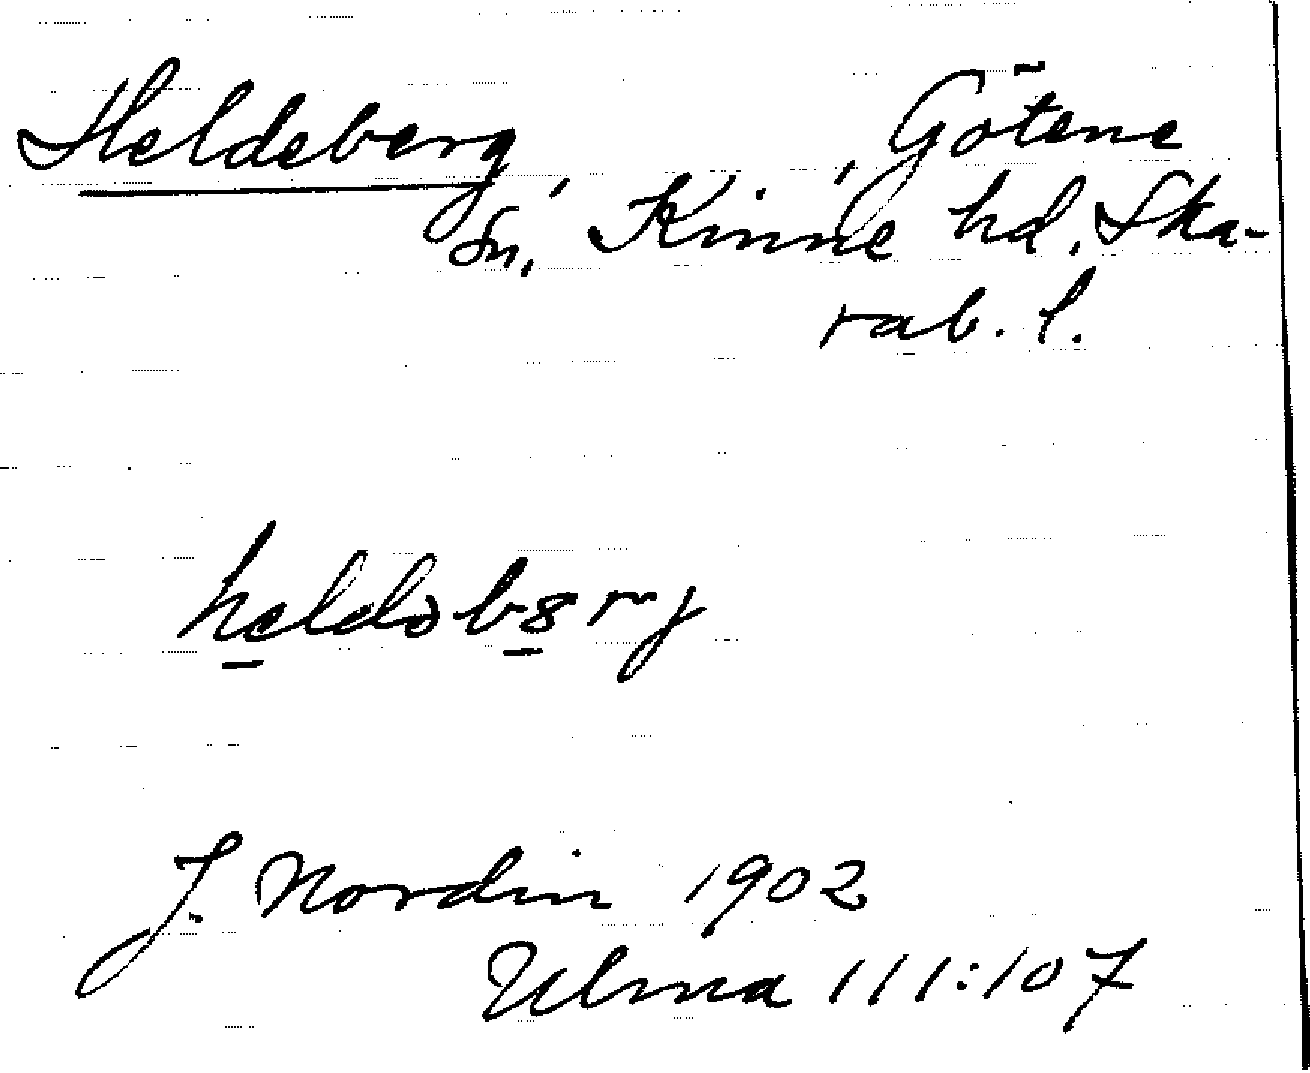 Heldeberg, Götene
sn, Kinne hd, Ska-
rab. l.
J. Nordin 1902
Ulma 111:107